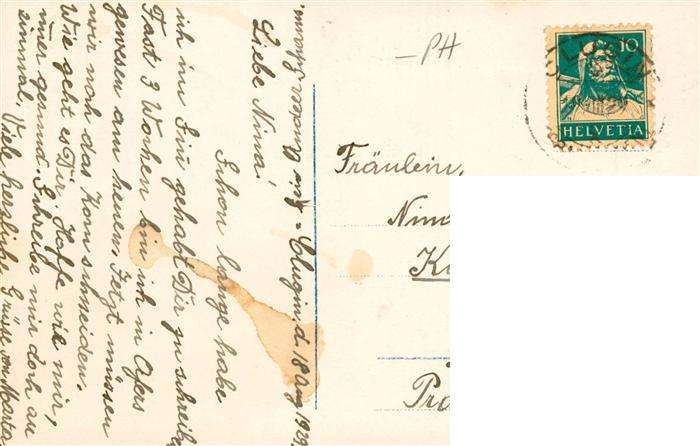 Clugin d. 18 Aug 1929.
Liebe Nina!
Schon lange habe
ich im Siñ gehabt Dir zu schreibe
Fast 3 Wochen bin ich in
gewesen am heuen. Jetzt müssen
wir noch das Korn schneiden.
Wie geht es Dir. Hoffe wie mir,
imer gesund. Schreibe mir doch au
einmal. Viele herzliche Grüsse von Marta
–PH
10
HELVETIA
Fräulein,
Nin
K
Pr